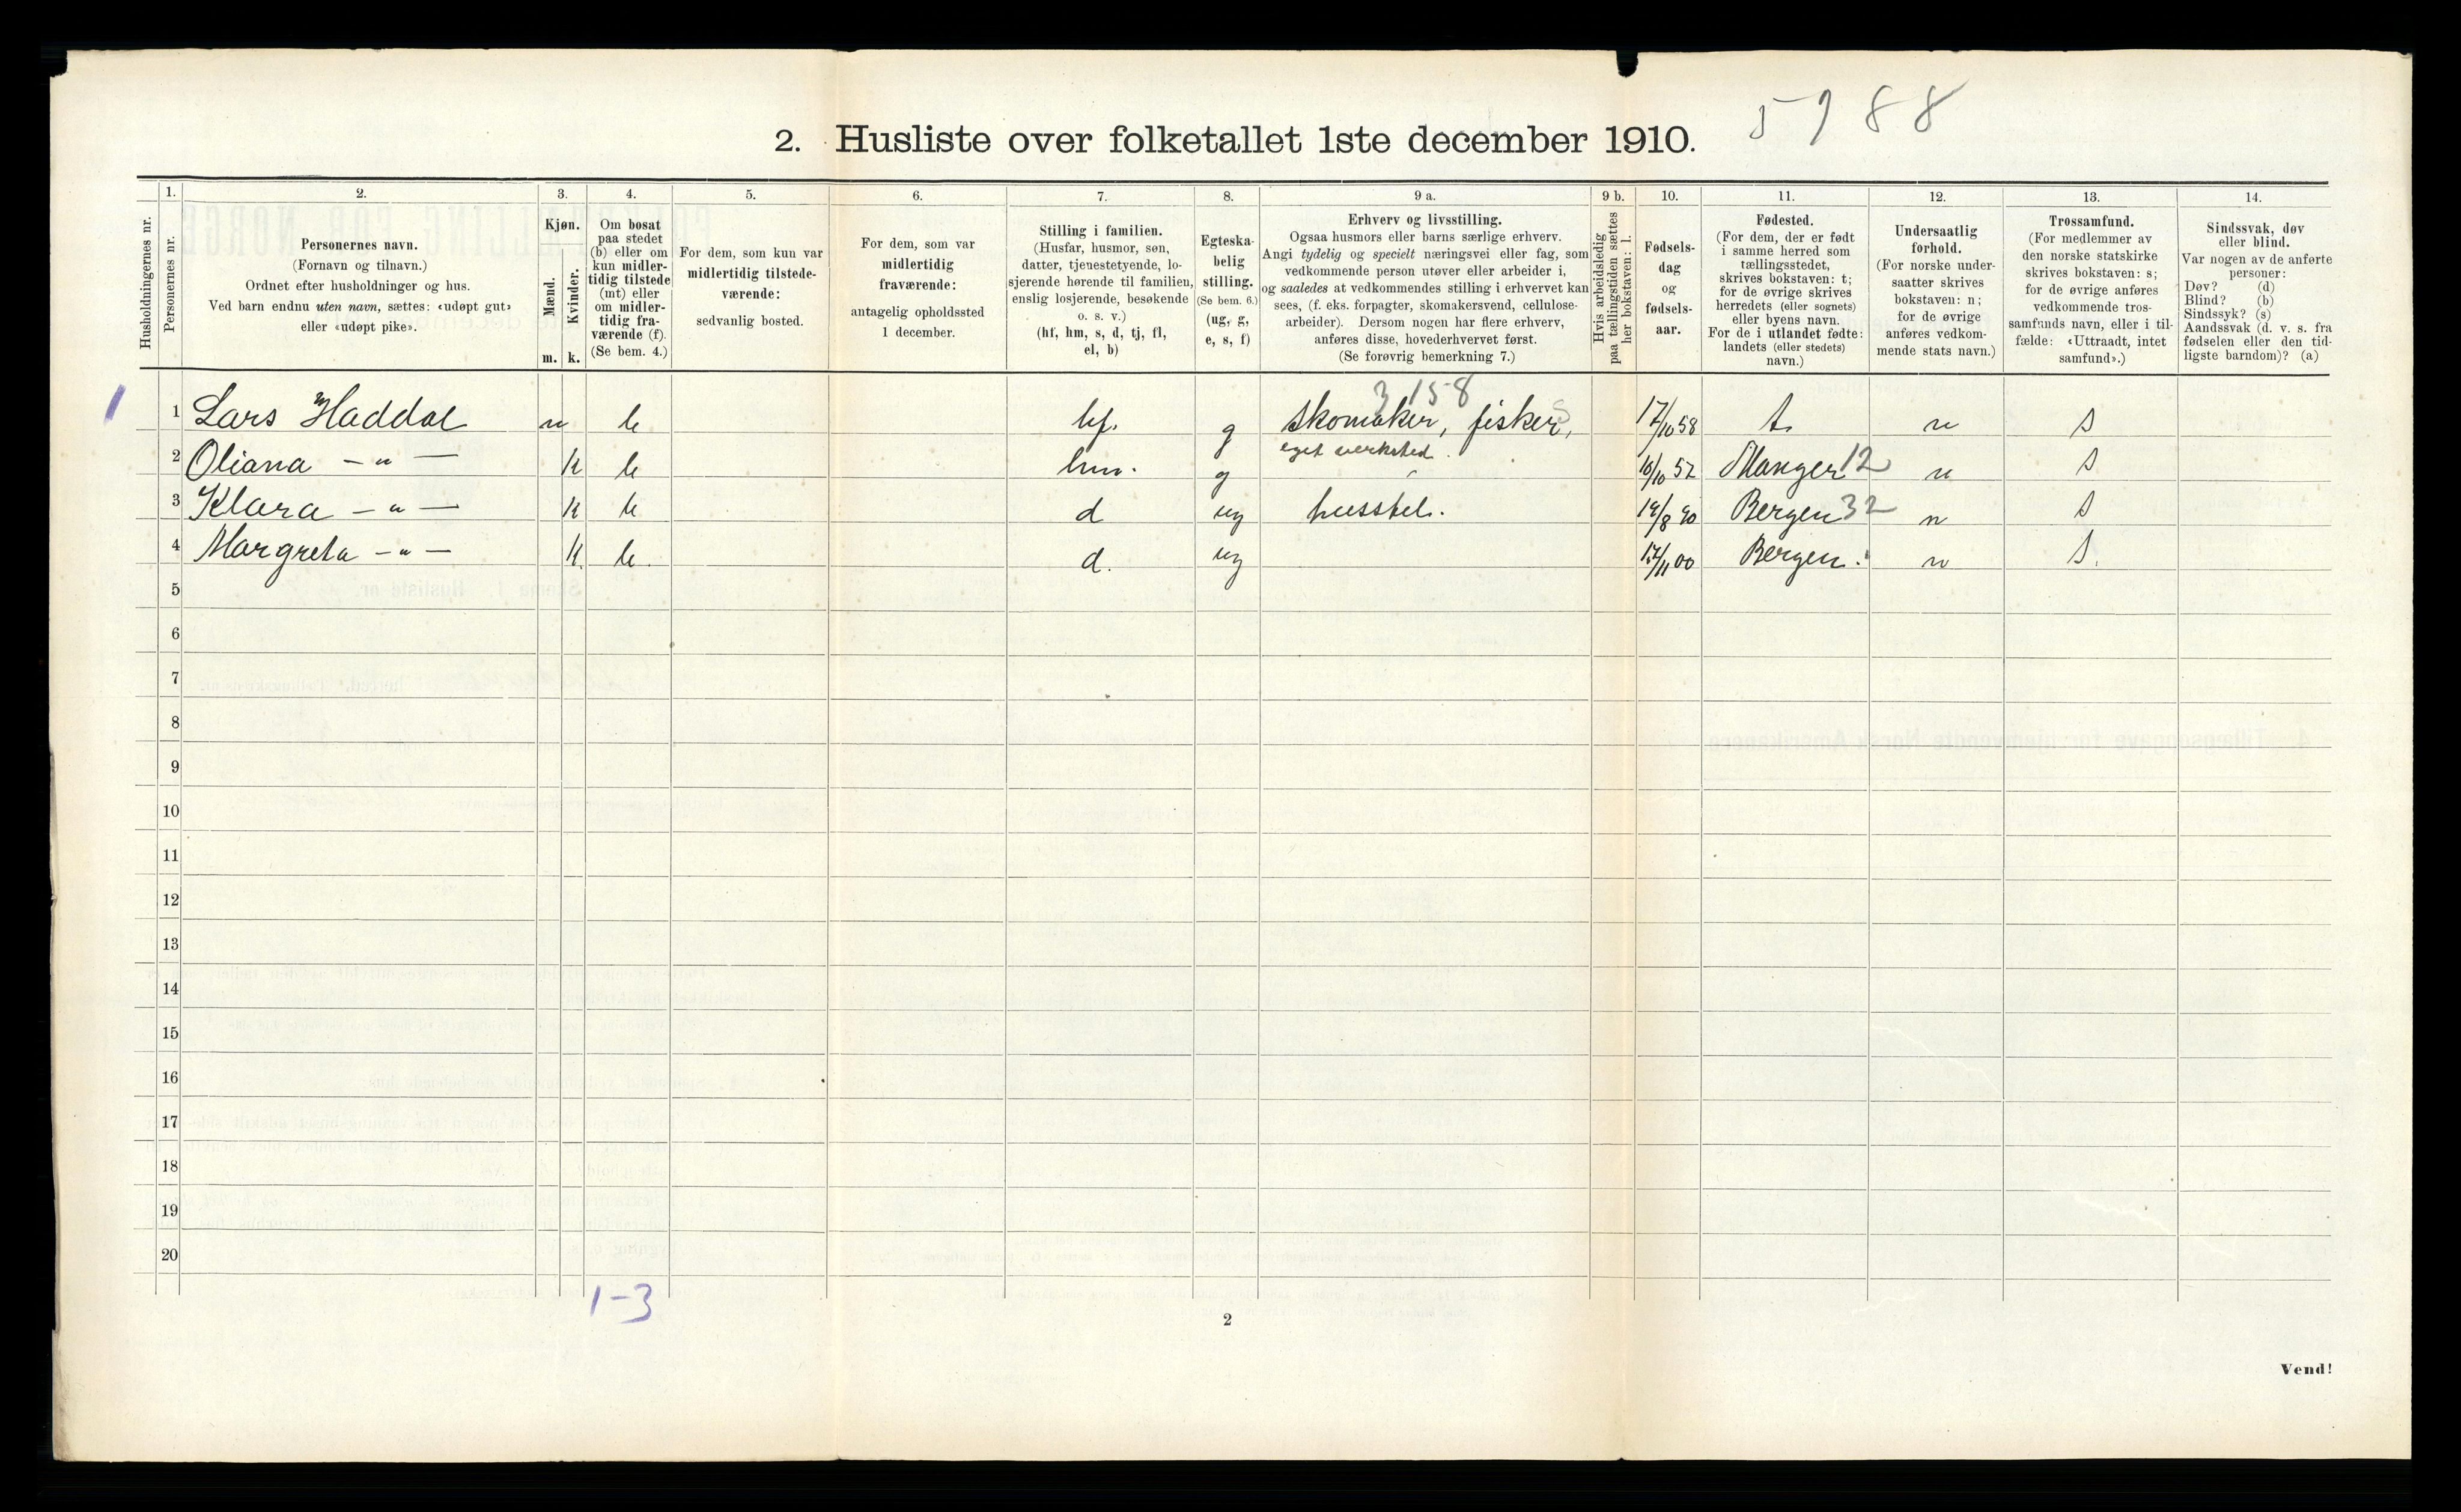 5988
2. Husliste over folketallet 1ste december 1910.
Husholdningernes nr.
1.
Personernes nr.
2.
Personernes navn.
(Fornavn og tilnavn.)
Ordnet efter husholdninger og hus.
Ved barn endnu uten navn, sættes: «udøpt gut»
eller «udøpt pike».
3.
Kjøn.
Mænd.
Kvinder.
m. k.
4.
Om bosat
paa stedet
(b) eller om
kun midler-
tidig tilstede
(mt) eller
om midler-
tidig fra-
værende (f).
(Se bem. 4.)
5.
For dem, som kun var
midlertidig tilstede-
værende:
sedvanlig bosted.
6.
For dem, som var
midlertidig
fraværende:
antagelig opholdssted
1 december.
7.
Stilling i familien.
(Husfar, husmor, søn,
datter, tjenestetyende, lo-
sjerende hørende til familien,
enslig losjerende, besøkende
o. s. v.)
(hf, hm, s, d, tj, fl,
el, b)
8.
Egteska-
belig
stilling.
(Se bem. 6.)
(ug, g,
e, s, f)
9 a.
Erhverv og livsstilling.
Ogsaa husmors eller barns særlige erhverv.
Angi tydelig og specielt næringsvei eller fag, som
vedkommende person utøver eller arbeider i,
og saaledes at vedkommendes stilling i erhvervet kan
sees, (f. eks. forpagter, skomakersvend, cellulose-
arbeider). Dersom nogen har flere erhverv,
anføres disse, hovederhvervet først.
(Se forøvrig bemerkning 7.)
9 b.
Hvis arbeidsledig
paa tællingstiden sættes
her bokstaven: l.
10.
Fødsels-
dag
og
fødsels-
aar.
11.
Fødested.
(For dem, der er født
i samme herred som
tællingsstedet,
skrives bokstaven: t;
for de øvrige skrives
herredets (eller sognets)
eller byens navn.
For de i utlandet fødte:
landets (eller stedets)
navn.)
12.
Undersaatlig
forhold.
(For norske under-
saatter skrives
bokstaven: n;
for de øvrige
anføres vedkom-
mende stats navn.)
13.
Trossamfund.
(For medlemmer av
den norske statskirke
skrives bokstaven: s;
for de øvrige anføres
vedkommende tros-
samfunds navn, eller i til-
fælde: «Uttraadt, intet
samfund».)
14.
Sindssvak, døv
eller blind.
Var nogen av de anførte
personer:
Døv? (d)
Blind? (b)
Sindssyk? (s)
Aandssvak (d. v. s. fra
fødselen eller den tid-
ligste barndom)? (a)
3 158
1 1 Lars Haddal m b hf. g skomaker, fisker, 17/10 58 t. n s
eget verksted.
2 Oliana - " - k b hm. g 16/10 52 Manger 12 n s
3 Klara - " - k b d ug husstel. 19/8 90 Bergen 32 n s
4 Margreta - " - k. b. d. ug 17/11 00 Bergen. n s.
5
6
7
8
9
10
11
12
13
14
15
16
17
18
19
20
1-3
2
Vend!